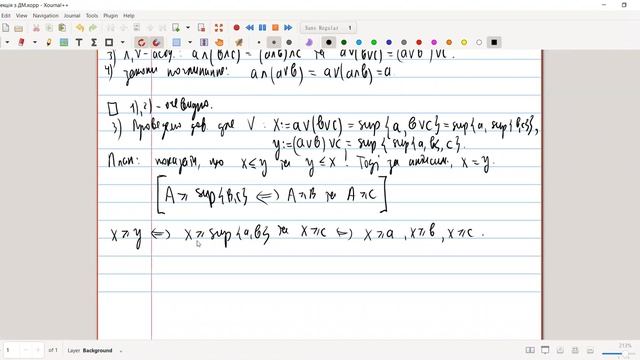 екція з ДМ.xopp - Xournal++
File Edit View Navigation Journal Tools Plugin Help
Sans Regular 1
3) ∧,∨ - асоц.: a∧(b∧c) = (a∧b)∧c та a∨(b∨c) = (a∨b)∨c.
4) закони поглинання: a∧(a∨b) = a∨(a∧b) = a.
□ 1), 2) - очевидно.
3) Проведемо дов. для ∨: x:=a∨(b∨c) = sup{a, b∨c} = sup{a, sup{b,c}},
y:=(a∨b)∨c = sup{sup{a,b}, c}.
План: показати, що x≤y та y≤x! Тоді за антисим., x=y.
[A ≥ sup{b,c} ⇔ A≥b та A≥c]
x≥y ⇔ x ≥ sup{a,b} та x≥c ⇔ x≥a, x≥b, x≥c.
1 of 1 Layer Background 213%